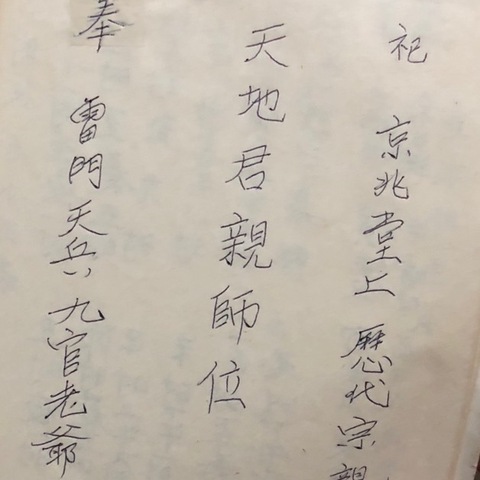 祀 京兆堂上歷代宗親
天地君親師位
奉 雷門天兵九官老爺